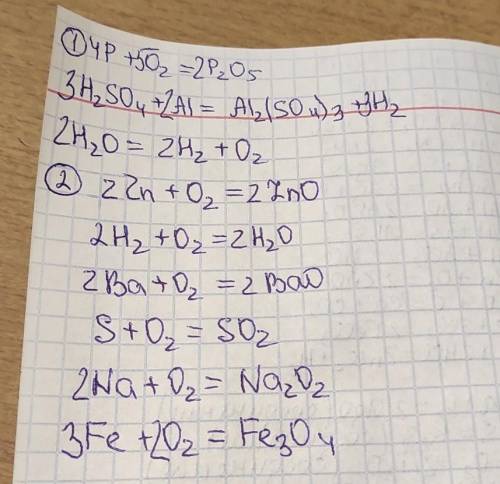 ① 4P + 5O₂ = 2P₂O₅
3H₂SO₄ + 2Al = Al₂(SO₄)₃ + 3H₂
2H₂O = 2H₂ + O₂
② 2Zn + O₂ = 2ZnO
2H₂ + O₂ = 2H₂O
2Ba + O₂ = 2BaO
S + O₂ = SO₂
2Na + O₂ = Na₂O₂
3Fe + 2O₂ = Fe₃O₄